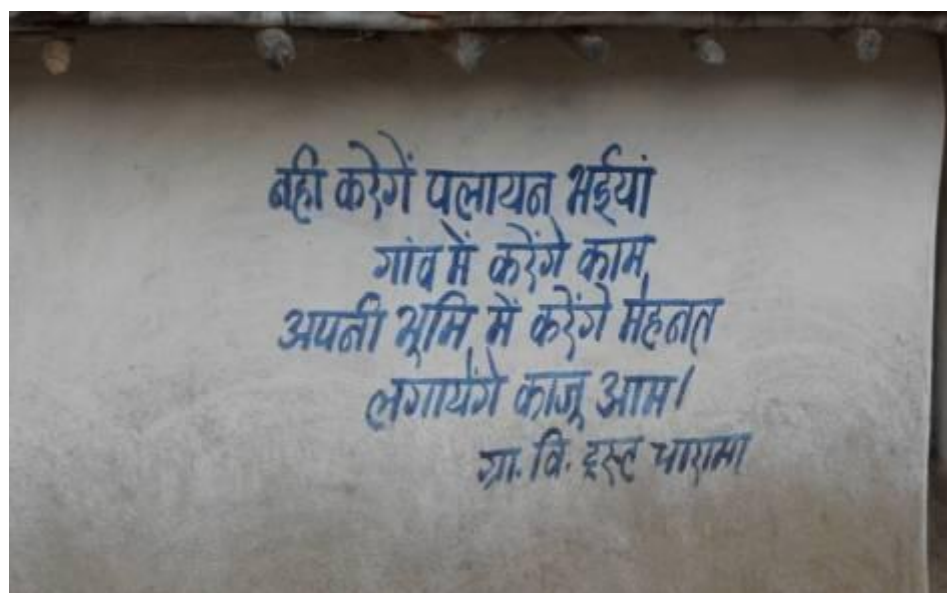 नही करेगें पलायन भईयां
गांव में करेंगे काम
अपनी भूमि में करेंगे मेहनत
लगायेंगे काजू आम।
ग्रा. वि. ट्रस्ट चारामा